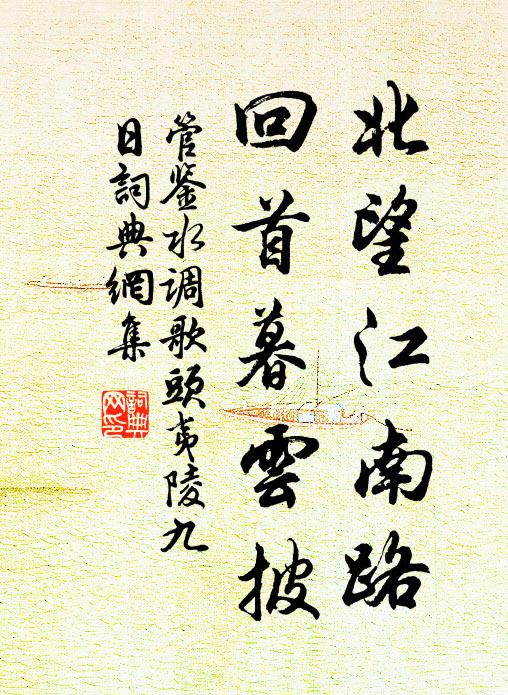 北望江南路
回首暮雲披
管鉴水调歌頭夷陵九
日詞典網集
詞典
网印